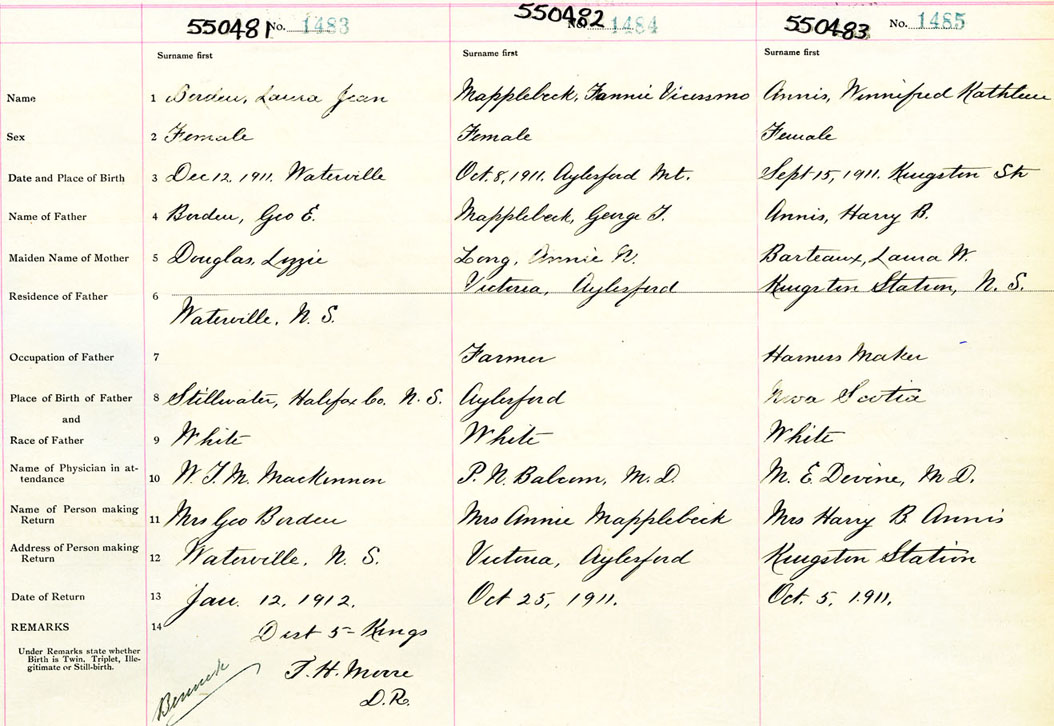 550481 No. 1483 550482 No. 1484 550483 No. 1485
Surname first Surname first Surname first
Name 1 Borden, Laura Jean Mapplebeck, Fannie Annis, Winnifred Kathleen
Sex 2 Female Female Female
Date and Place of Birth 3 Dec 12, 1911. Waterville Oct. 8, 1911. Aylesford Mt. Sept 15, 1911. Kingston Stn
Name of Father 4 Borden, Geo E. Mapplebeck, George T. Annis, Harry B.
Maiden Name of Mother 5 Douglas, Lizzie Long, Annie N. Barteaux, Laura W.
Residence of Father 6 Waterville, N. S. Victoria, Aylesford Kingston Station, N. S.
Occupation of Father 7 Farmer Harness Maker
Place of Birth of Father 8 Stillwater, Halifax Co. N. S. Aylesford Nova Scotia
and
Race of Father 9 White White White
Name of Physician in at-
tendance 10 W. F. M. MacKinnon P. N. Balcom, M. D. M. E. Devine, M D.
Name of Person making
Return 11 Mrs Geo Borden Mrs Annie Mapplebeck Mrs Harry B. Annis
Address of Person making
Return 12 Waterville, N. S. Victoria, Aylesford Kingston Station
Date of Return 13 Jan. 12, 1912. Oct 25, 1911. Oct. 5, 1911.
REMARKS 14 Dist 5 = Kings
Under Remarks state whether
Birth is Twin, Triplet, Ille-
gitimate or Still-birth.
T. H. Morse
D. R.
Berwick